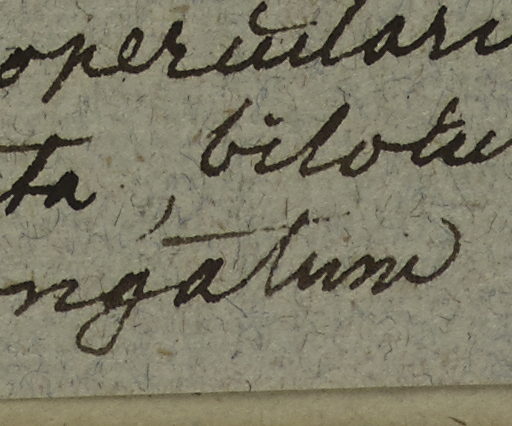 operculari
ta, bilocu
ngatum